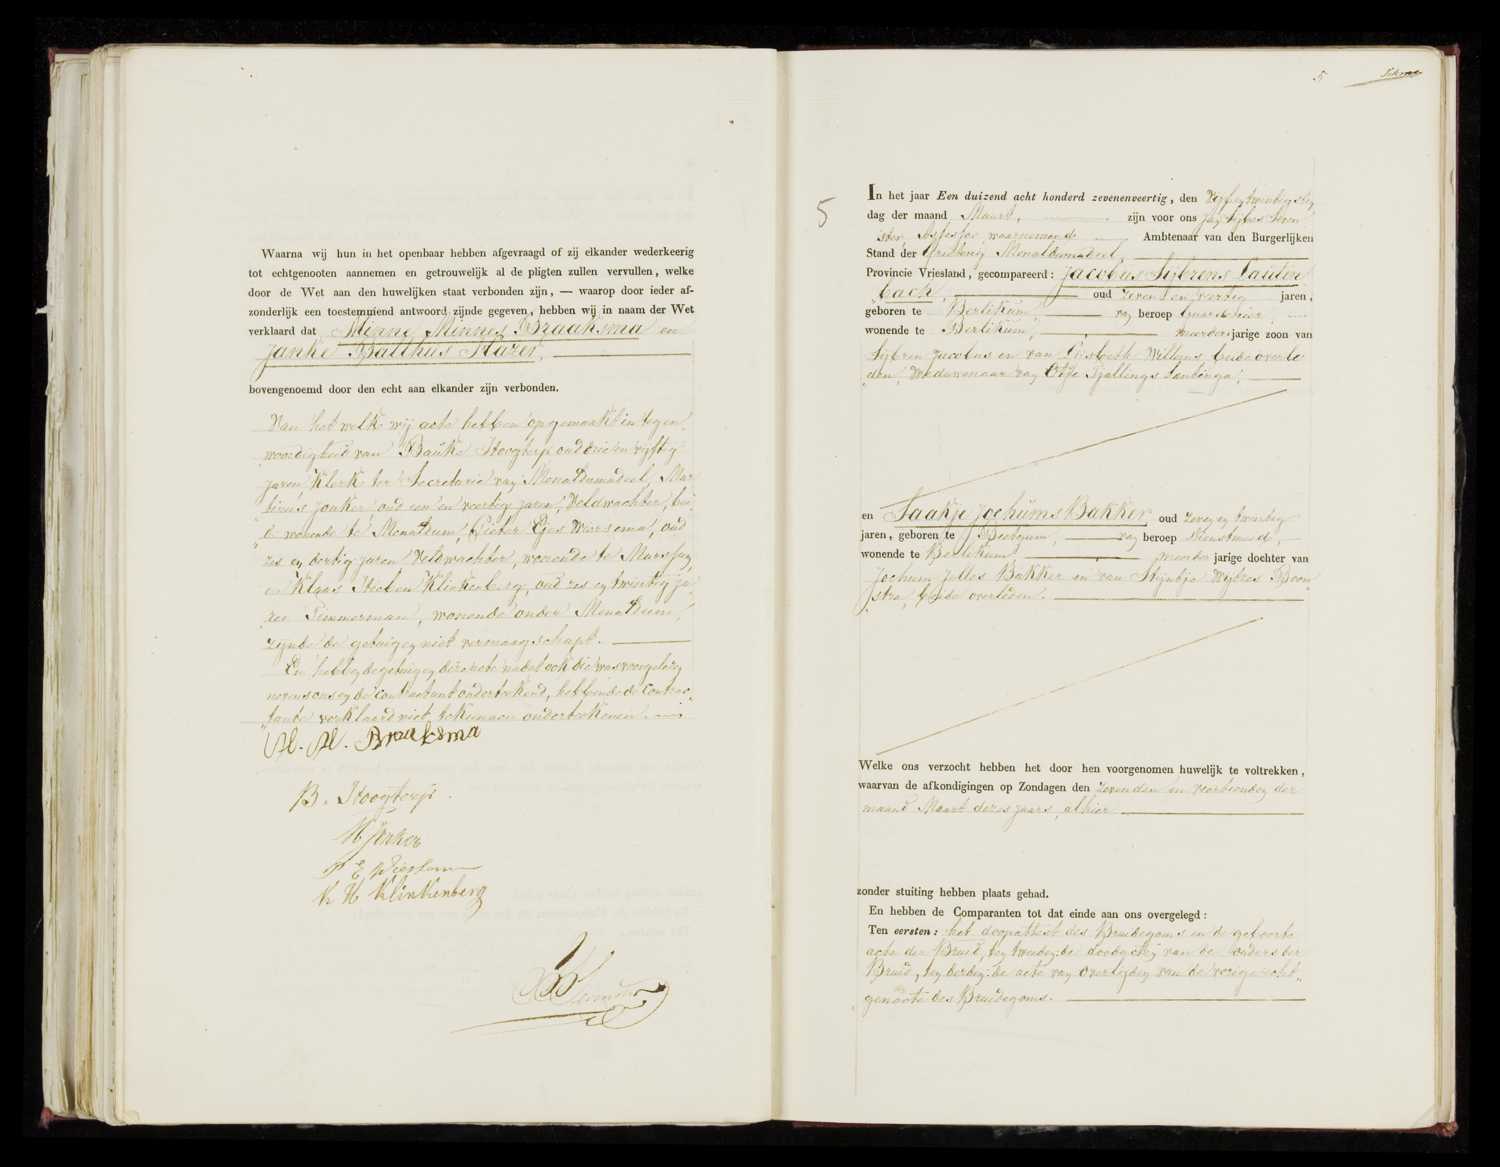 Waarna wij hun in het openbaar hebben afgevraagd of zij elkander wederkeerig
tot echtgenooten aannemen en getrouwelijk al de pligten zullen vervullen, welke
door de Wet aan den huwelijken staat verbonden zijn, — waarop door ieder af-
zonderlijk een toestemmend antwoord zijnde gegeven, hebben wij in naam der Wet
verklaard dat Minne Minnes Braaksma en
Janke Balthus Hazer,
bovengenoemd door den echt aan elkander zijn verbonden.
Van het welk wij acte hebben opgemaakt in tegen„
woordigheid van Bauke Hoogterp oud drie en vijftig
jaren Klerk ter Secretarie van Menaldumadeel, Mar„
tinus Jonker oud een en veertig jaren, Veldwachter, bei„
de wonende te Menaldum, Pieter Eges Wiersema, oud
zes en dertig jaren Veldwachter, wonende te Marssum
en Klaas Klinkenberg, oud zes en twintig ja„
ren Timmerman, wonende onder Menaldum,
zijnde de getuigen niet vermaagschapt.
En hebben de getuigen deze acte nadat ook die was voorgelezen
nevens ons en de Contractant ondertekend, hebbende de Contrac„
tante verklaard niet te kunnen ondertekenen.
M. M. Braaksma
B. Hoogterp.
M Jonker
P E Wiersema
K H Klinkenberg
5
5
In het jaar Een duizend acht honderd zevenenveertig, den Vijf en twintigsten
dag der maand Maart, zijn voor ons
Assessor, waarnemende Ambtenaar van den Burgerlijken
Stand der Grietenij Menaldumadeel,
Provincie Vriesland, gecompareerd: Jacobus Sijbrens Lautin
bach, oud zeven en veertig jaren,
geboren te Berlikum, van beroep
wonende te Berlikum, meerderjarige zoon van
Sijbren Jacobus en van Liesbeth Willems, beide overle
den, Weduwenaar van Tjallings
en Saakje Jochums Bakker oud zeven en twintig
jaren, geboren te Beetgum, van beroep Dienstmeid,
wonende te Berlikum meerderjarige dochter van
Jochum Jelles Bakker en van Stijntje Wijtzes Boon
stra, beide overleden.
Welke ons verzocht hebben het door hen voorgenomen huwelijk te voltrekken,
waarvan de afkondigingen op Zondagen den zevenden en veertienden der
maand Maart dezes jaars, alhier
zonder stuiting hebben plaats gehad.
En hebben de Comparanten tot dat einde aan ons overgelegd:
Ten eersten: het doopattest des Bruidegoms en de geboorte
acte der Bruid, ten tweeden: de doodacten van de ouders der
Bruid, ten derden: de acte van overlijden van de vorige echt„
genoote des Bruidegoms.